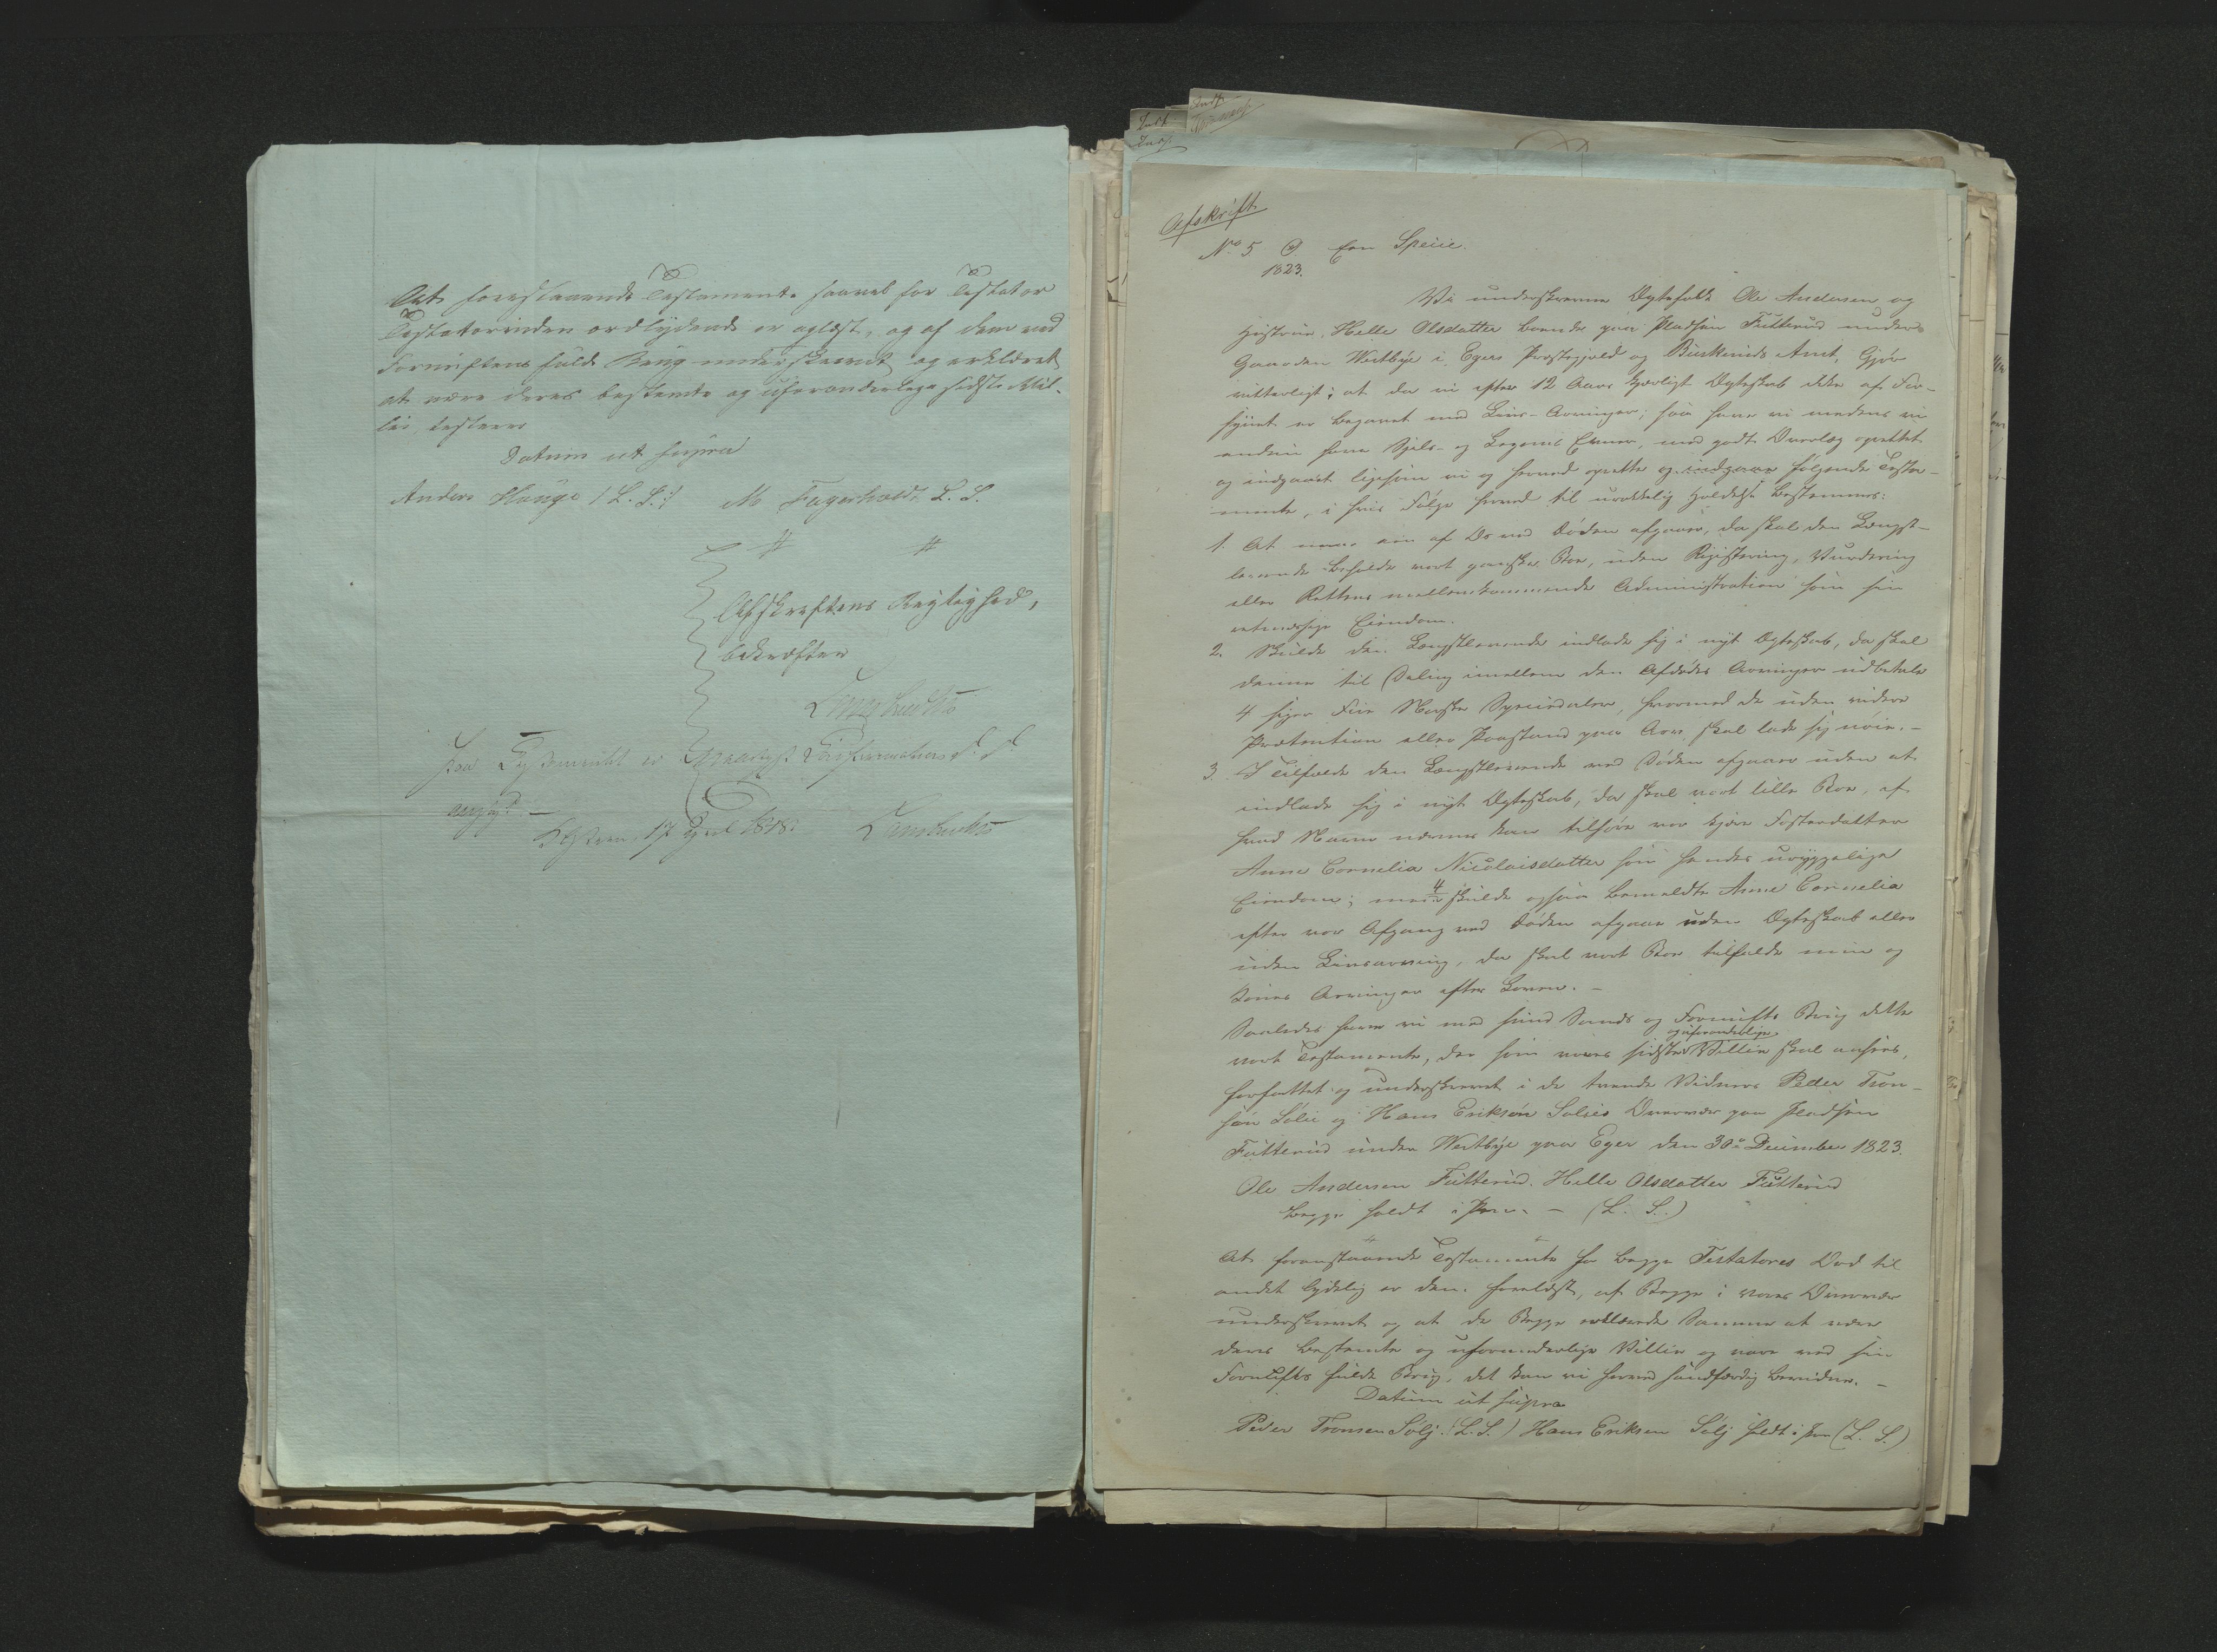 At forestaaende Testamente saavel for Testator
Testatorinden ordlydende er oplæst, og af dem ved
Fornuftens fulde Brug underskrevet og erklæret
at være deres bestemte og uforanderlige sidste Vil-
lie, testeres
Datum ut supra
Anders Hauge /L. S./ M Fagerholdt L. S.
Afskriftens Rigtighed,
bekræfter
Lambrechts
17 April 1848. Lambrechts
Afskrift
No. 5 Een Specie.
1823.
Vi underskrevne Ægtefolk Ole Andersen og
Hustrue Helle Olsdatter boende paa Pladsen Futterud under
Gaarden Westbye i Egers Præstegjeld og Buskeruds Amt, Gjør
vitterligt; at da vi efter 12 Aars kjærligt Ægteskab ikke af For-
synet er begavet med Livs-Arvinger; saa have vi medens vi
endnu have Sjels- og Legems Evner, med godt Overlæg oprettet
og indgaaet ligesom vi og herved oprette og indgaae følgende Testa-
mente, i hvis Følge herved til urokkelig Holdelse bestemmes:
1. At naar een af Os ved Døden afgaaer, da skal den Længst-
levende beholde vort ganske Boe, uden Registering, Vurdering
eller Rettens mellemkommende Administration som sin
retmæssige Eiendom.
2. Skulde den Længstlevende indlade sig i nyt Ægteskab, da skal
denne til Deling imellem den Afdødes Arvinger udbetale
4 siger Fiire Norske Speciedaler, hvormed de uden videre
Prætention eller Paastand paa Arv skal lade sig nøie. -
3. I Tilfælde den Længstlevende ved Døden afgaaer uden at
indlade sig i nyt Ægteskab, da skal vort lille Boe, af
hvad Navn nævnes kan tilhøre vor kjære Fosterdatter
Anne Cornelia Nicolaisdatter som hendes uryggelige
Eiendom; men skulde ogsaa bemeldte Anne Cornelia
efter vor Afgang ved Døden afgaae uden Ægteskab eller
uden Livsarving, da skal vort Boe tilfalde min og
Kones Arvinger efter Loven. -
Saaledes have vi med sund Sands og Fornufts Brug dette
og uforanderlige
vort Testamente, der som vores sidste Villie skal ansees,
forfattet og underskrevet i de tvende Vidners Peder Tron-
søn Sølie og Hans Eriksøn Solies Overvær paa Pladsen
Futterud under Westbye paa Eger den 30te December 1823.
Ole Andersen Futterud. Helle Olsdatter Futterud
begge holdt i Pen. - (L. S.)
At foranstaaende Testamente for begge Testatores Ord til
andet lydelig er dem forelæst, af Begge i vores Overvær
underskrevet og at de Begge erklærede Samme at være
deres bestemte og uforanderlige Villie og være ved sin
Fornufts fulde Brug, det kan vi herved sandfærdig bevidne. -
Datum ut supra
Peder Tronsen Sølj (L. S.) Hans Eriksen Sølj holdt i Pen (L. S.)